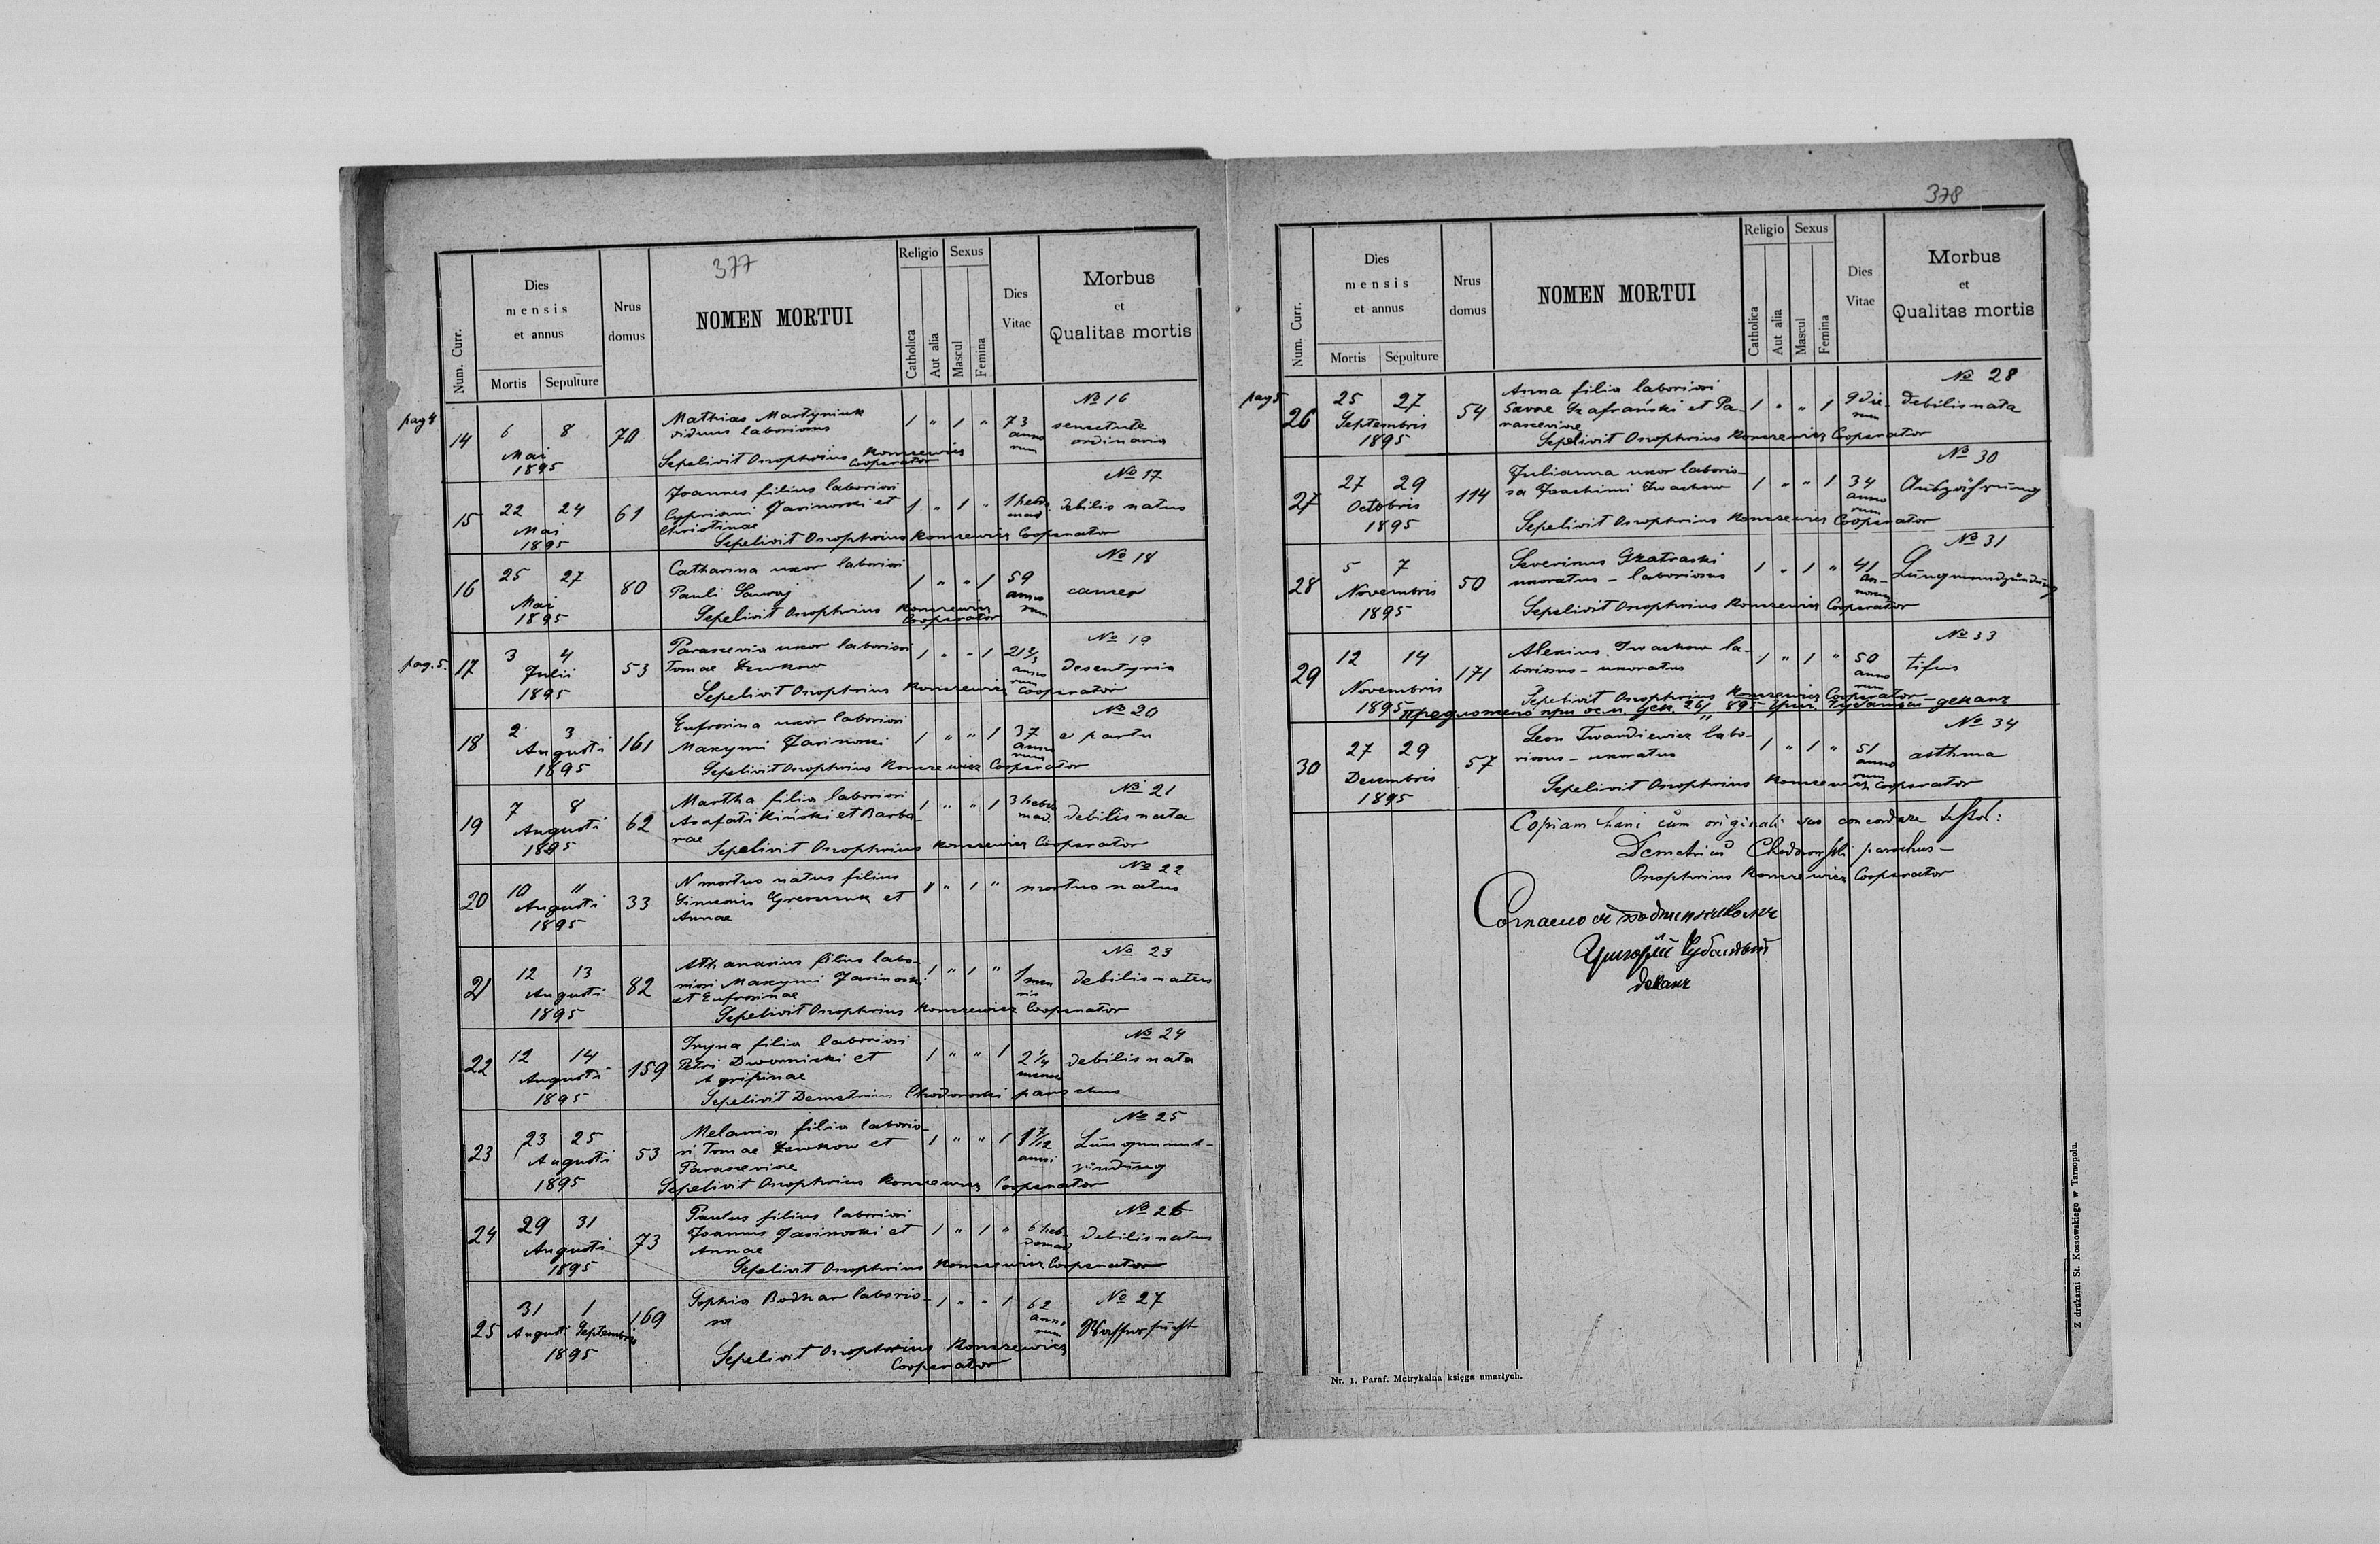 377
Num. Curr.
Dies
mensis
et annus
Mortis
Sepulture
Nrus
domus
NOMEN MORTUI
Religio
Catholica
Aut alia
Sexus
Mascul
Femina
Dies
Vitae
Morbus
et
Qualitas mortis
pag 4
№ 16
14 6 8 70 Mathias Martyniuk 1 " 1 " 73 senectute
Mai viduus laboriosus anno ordinaria
1895 Sepelivit Onophrius Konczewicz rum
Cooperator
№ 17
15 22 24 61 Joannes filius laboriosi 1 " 1 " 1 hebdo debilis natus
Mai Cypriani Jasinowski et mad.
1895 Christinae
Sepelivit Onophrius Konczewicz Cooperator
№ 18
16 25 27 80 Catharina uxor laboriosi 1 " " 1 59 cancer
Mai Pauli anno
1895 Sepelivit Onophrius Konczewicz rum
Cooperator
pag. 5.
№ 19
17 3 4 53 Parascevia uxor laboriosi 1 " " 1 21 desentyria
Julii Tomae anno
1895 rum
Sepelivit Onophrius Konczewicz Cooperator
№ 20
18 2 3 161 Eufrosina uxor laboriosi 1 " " 1 37 e partu
Augusti Maxymi Jasinowski anno
1895 rum
Sepelivit Onophrius Konczewicz Cooperator
№ 21
19 7 8 62 Martha filia laboriosi 1 " " 1 3 hebdo debilis nata
Augusti Asafati Kiński et Barba- mad.
1895 rae
Sepelivit Onophrius Konczewicz Cooperator
№ 22
20 10 11 33 N mortus natus filius 1 " 1 " mortus natus
Augusti Simeonis et
1895 Annae
№ 23
21 12 13 82 Athanasius filius labo- 1 " 1 " 1 men debilis natus
Augusti riosi Maxymi Jasinowski sis
1895 et Eufrosinae
Sepelivit Onophrius Konczewicz Cooperator
№ 24
22 12 14 159 Iryna filia laboriosi 1 " " 1 2 1/4 debilis nata
Augusti Petri Dwornicki et
1895 Agripinae
Sepelivit Demetrius Chodorowski parochus
№ 25
23 23 25 53 Melania filia laborio- 1 " " 1 1 7/12 Lungenent-
Augusti si Tomae et anni zündung
1895 Parasceviae
Sepelivit Onophrius Konczewicz Cooperator
№ 26
24 29 31 73 Paulus filius laboriosi 1 " 1 " 6 heb- debilis natus
Augusti Joannis Jasinowski et domad
1895 Annae
Sepelivit Onophrius Konczewicz Cooperator
№ 27
25 31 1 169 Sophia Bodnar laborio- 1 " " 1 62 Wassersucht
Augusti Septembris sa anno
1895 rum
Sepelivit Onophrius Konczewicz
Cooperator
378
Num. Curr.
Dies
mensis
et annus
Mortis
Sepulture
Nrus
domus
NOMEN MORTUI
Religio
Catholica
Aut alia
Sexus
Mascul
Femina
Dies
Vitae
Morbus
et
Qualitas mortis
pag 5
№ 28
26 25 27 54 Anna filia laboriosi 1 " " 1 9 die- debilis nata
Septembris Savae Szafrański et Pa- rum
1895 rasceviae
Sepelivit Onophrius Konczewicz Cooperator
№ 30
27 27 29 114 Julianna uxor laborio- 1 " " 1 34 Auszährung
Octobris Joachimi Iwachow anno
1895 rum
Sepelivit Onophrius Konczewicz Cooperator
№ 31
28 5 7 50 Severinus 1 " 1 " 41 Lungenendzündung
Novembris uxoratus - laboriosus an-
1895 norum
Sepelivit Onophrius Konczewicz Cooperator
№ 33
29 12 14 171 Alexius Iwachow la- 1 " 1 " 50 tifus
Novembris boriosus - uxoratus anno
1895 rum
Sepelivit Onophrius Konczewicz Cooperator
Предложено при 895 деканъ
№ 34
30 27 29 57 Leon Twardiewicz labo- 1 " 1 " 51 asthma
Decembris riosus - uxoratus anno
1895 rum
Sepelivit Onophrius Konczewicz Cooperator
Copiam hanc cum originali suo concordare testor:
Demetrius Chodorowski parochus -
Onophrius Konczewicz Cooperator
Согласно съ подлинникомъ
Григорій
деканъ
Nr. 1. Paraf. Metrykalna księga umarłych.
Z drukarni St. Kossowskiego w Tarnopolu.